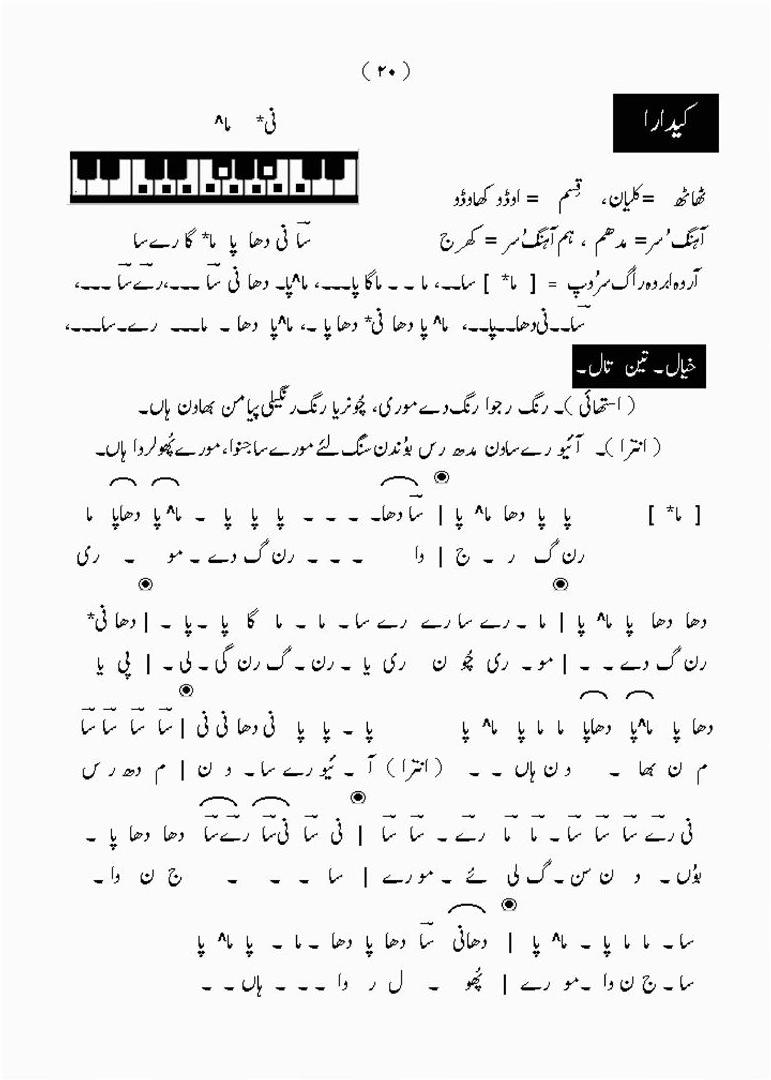 ( ۲۰ )
کیدارا
نی* ما^
ٹھاٹھ = کلیان، قِسم = اوڈو کھاوڈو
آہنگ سُر= مدھم ، ہم آہنگ سُر = کھرج
سا نی دھا پا ما* گا رے سا
آروہ ابروہ راگ سرُوپ = [ ما* ] سا۔۔، ما ۔ ۔ ماگا پا۔۔۔، ما^پا۔ دھا نی سا ۔۔۔،رے سا ۔۔۔،
سا۔۔نی دھا۔۔پا۔۔، ما^ پا دھا نی* دھا پا ۔، ما^پا دھا ۔ ما۔۔۔ رے۔سا۔۔۔،
خیال۔ تین تال۔
( استھائی )۔ رنگ رجوا رنگ دے موری، چُونریا رنگ رنگیلی پیا من بھاون ہاں۔
( انترا )۔ آئیو رے ساون مدھ رس بوُندن سنگ لئے مورے ساجنوا، مورے پُھولردا ہاں۔
[ ما* ] پا پا دھا ما^ پا | سا دھا۔ ۔ ۔ ۔ پا پا پا ۔ ما^ پا دھاپا ما
رن گ ر ۔ ج | وا ۔ ۔ ۔ رن گ دے ۔ مو ۔ ری
دھا دھا پا ما^ پا | ما ۔ رے سا رے رے سا ۔ ما ۔ ما گا پا ۔پا ۔ | دھا نی*
رن گ دے ۔ ۔ | مو ۔ ری چُو ن ری یا ۔ رن ۔ گ رن گی ۔ لی ۔ | پی یا
دھا پا ما^پا دھاپا ما ما پا ما^ پا پا ۔ پا پا نی دھا نی نی | سا سا سا سا
م ن بھا ۔ و ن ہاں ۔ ۔ ( انترا ) آ ۔ ئیو رے سا ۔ و ن | م دھ ر س
نی رے سا سا سا ۔ ما ما رے ۔ سا سا | نی سا نی سا رے سا دھا دھا پا ۔
بوُں ۔ د ن سن ۔ گ لی ئے ۔ مو رے | سا ۔ ۔ ۔ ج ن وا ۔
سا ۔ ما ما پا ۔ ما^ پا | دھانی سا دھا پا دھا ۔ ما ۔ پا ما^ پا
سا ۔ ج ن وا ۔ مو رے | پُھو ۔ ل ر دا ۔ ۔ ۔ ہاں ۔ ۔